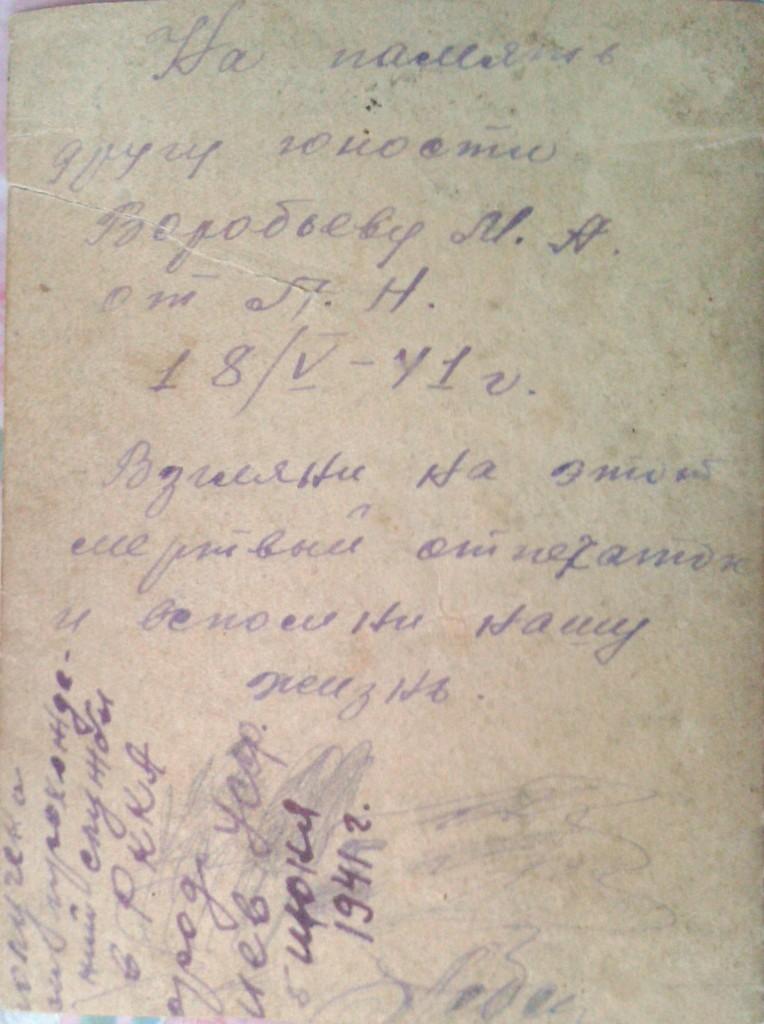 На память
другу юности
Воробьеву М. А.
от П. Н.
18/V-41 г.
Взгляни на этот
мертвый отпечаток
и вспомни нашу
жизнь.
получена
прохожде-
нии службы
в РККА
город
Киев УССР.
5 июня
1941 г.